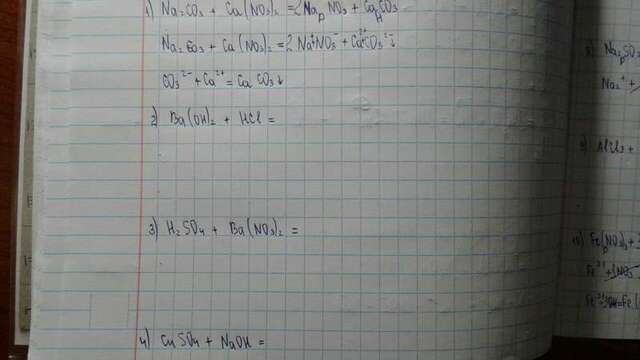 1) Na2CO3 + Ca(NO3)2 = 2NaNO3 + CaCO3
р н
Na2CO3 + Ca(NO3)2 = 2Na+NO3- + Ca2+CO3 2-↓
CO3 2- + Ca2+ = CaCO3↓
2) Ba(OH)2 + HCl =
3) H2SO4 + Ba(NO3)2 =
4) CuSO4 + NaOH =
Na2SO
р
Na2+ +
9) AlCl3 +
10) Fe(NO3)3 +
р
Fe3+ +